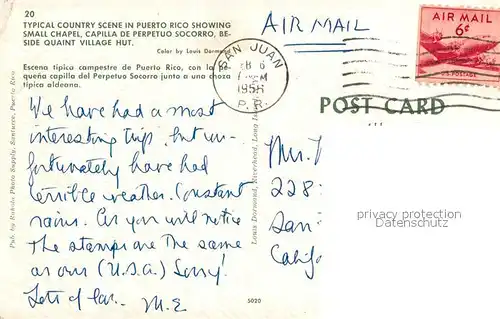 20
TYPICAL COUNTRY SCENE IN PUERTO RICO SHOWING
SMALL CHAPEL, CAPILLA DE PERPETUO SOCORRO, BE-
SIDE QUAINT VILLAGE HUT.
Color by Louis Dormand
Escena típica campestre de Puerto Rico, con la pe-
queña capilla del Perpetuo Socorro junto a una choza
típica aldeana.
AIR MAIL
SAN JUAN
1958
P.R.
AIR MAIL
6¢
U.S. POSTAGE
POST CARD
We have had a most
interesting trip but un-
fortunately have had
terrible weather. Constant
rains. As you will notice
the stamps are the same
as our (U.S.A.) Sorry!
Lots of luv.
M.E
Pub. by Rahola Photo Supply, Santurce, Puerto Rico
Louis Dormand, Riverhead, Long Island
5020
Mr.
228
San
Califo
privacy protection
Datenschutz